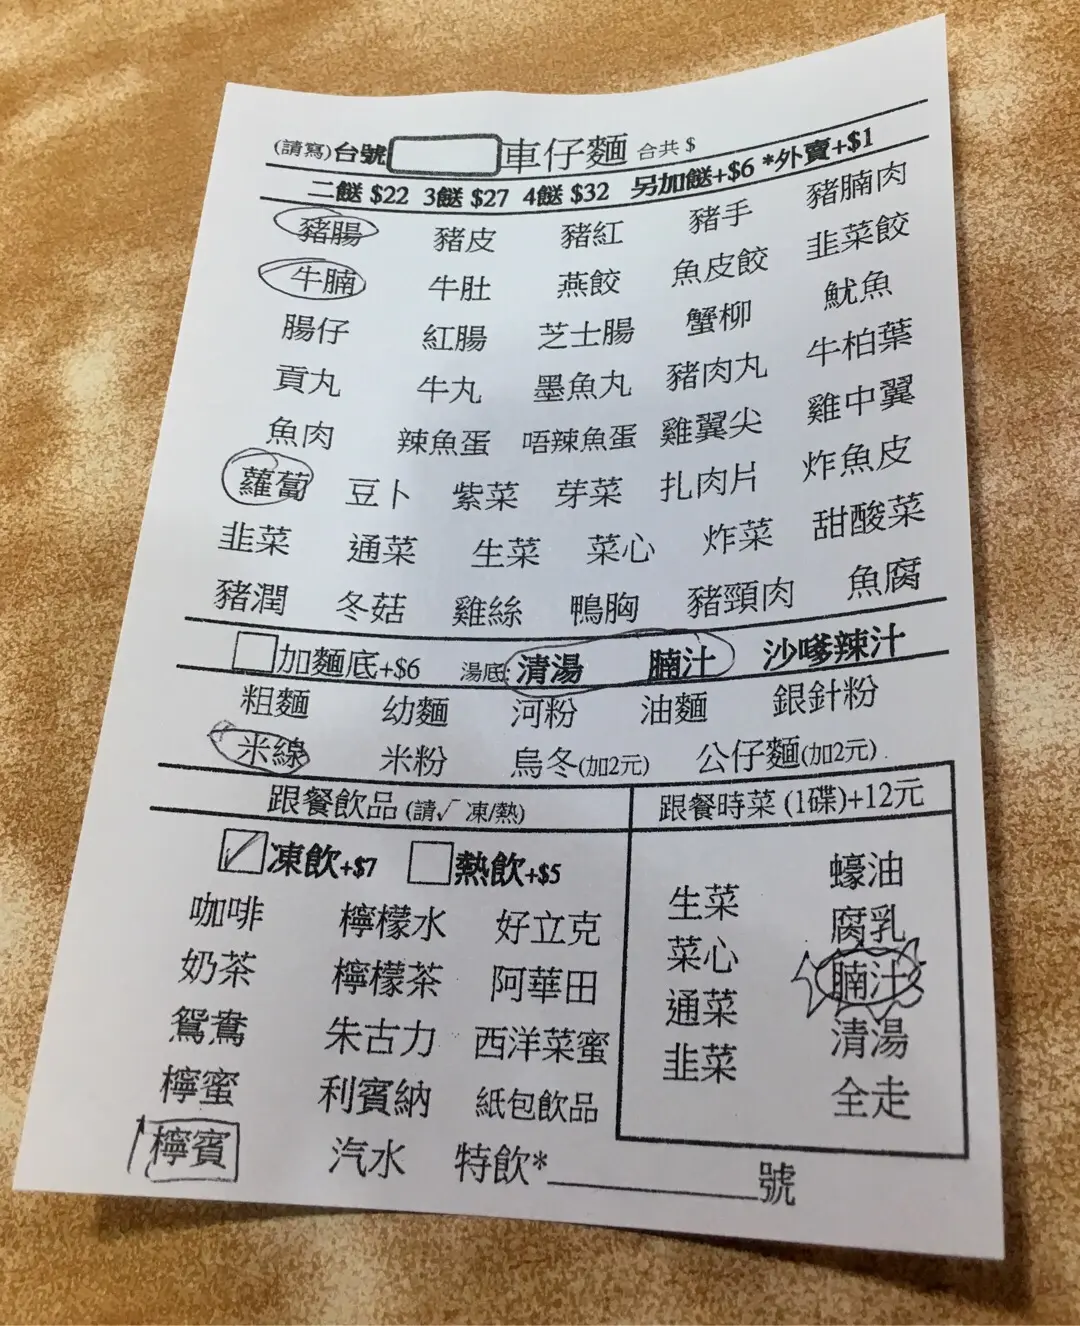 (請寫)台號 車仔麵 合共 $
二餸 $22 3餸 $27 4餸 $32 另加餸+$6 *外賣+$1
豬腸 豬皮 豬紅 豬手 豬腩肉
牛腩 牛肚 燕餃 魚皮餃 韭菜餃
腸仔 紅腸 芝士腸 蟹柳 魷魚
貢丸 牛丸 墨魚丸 豬肉丸 牛柏葉
魚肉 辣魚蛋 唔辣魚蛋 雞翼尖 雞中翼
蘿蔔 豆卜 紫菜 芽菜 扎肉片 炸魚皮
韭菜 通菜 生菜 菜心 炸菜 甜酸菜
豬潤 冬菇 雞絲 鴨胸 豬頸肉 魚腐
加麵底+$6 湯底: 清湯 腩汁 沙嗲辣汁
粗麵 幼麵 河粉 油麵 銀針粉
米線 米粉 烏冬(加2元) 公仔麵(加2元)
跟餐飲品 (請√ 凍/熱)
凍飲+$7 熱飲+$5
咖啡 檸檬水 好立克
奶茶 檸檬茶 阿華田
鴛鴦 朱古力 西洋菜蜜
檸蜜 利賓納 紙包飲品
檸賓 汽水 特飲*________號
跟餐時菜 (1碟)+12元
生菜 蠔油
菜心 腐乳
通菜 腩汁
韭菜 清湯
全走